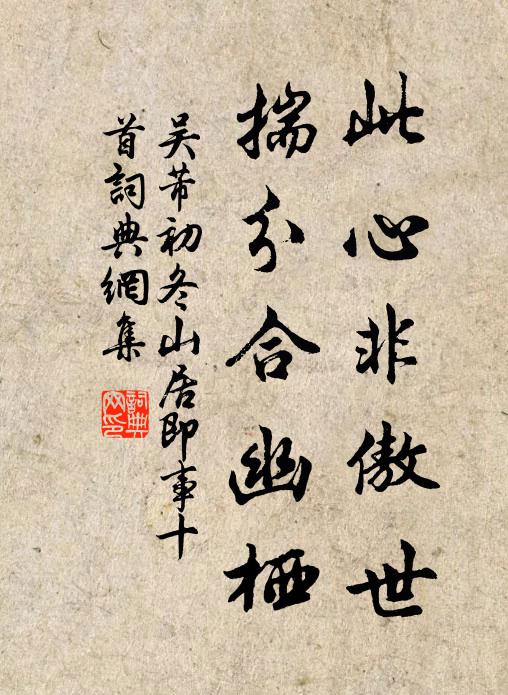 此心非傲世
揣分合幽栖
吴芾初冬山居即事十
首詞典網集
詞典
网印